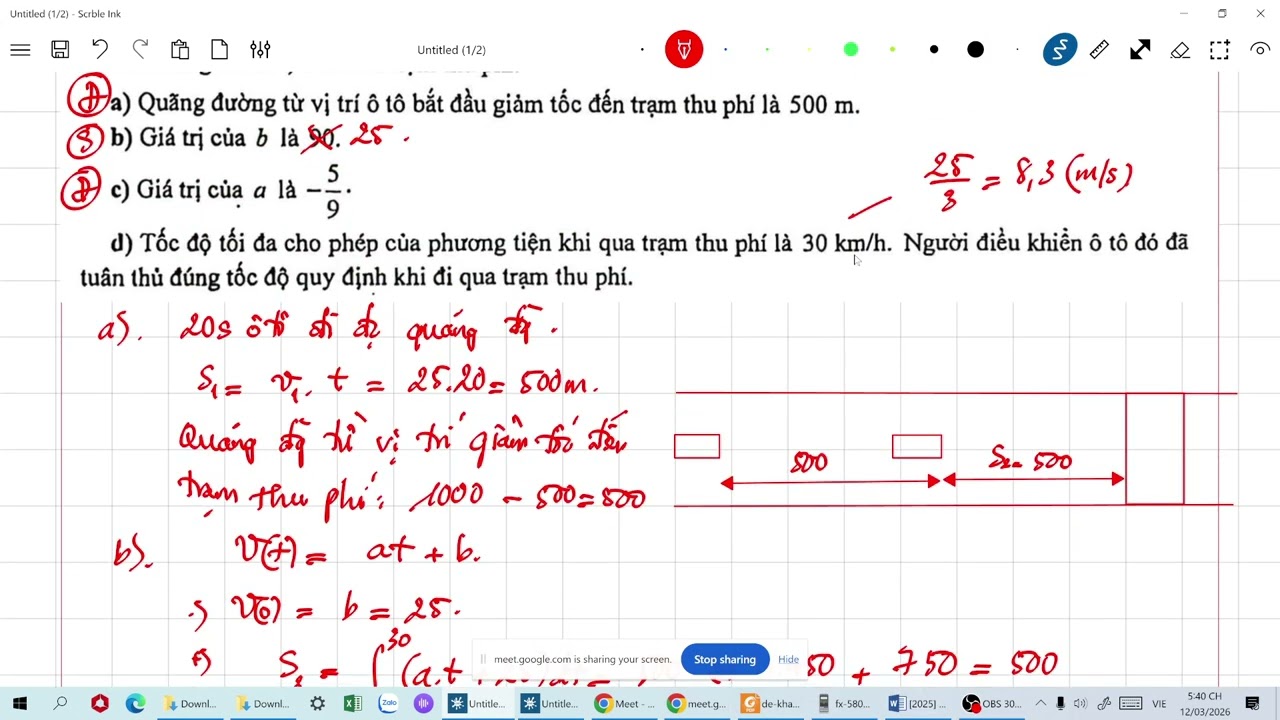 Untitled (1/2) - Scrble Ink
Untitled (1/2)
Đ a) Quãng đường từ vị trí ô tô bắt đầu giảm tốc đến trạm thu phí là 500 m.
S b) Giá trị của b là 90. 25.
Đ c) Giá trị của a là −5/9.
25/3 = 8,3 (m/s)
d) Tốc độ tối đa cho phép của phương tiện khi qua trạm thu phí là 30 km/h. Người điều khiển ô tô đó đã
tuân thủ đúng tốc độ quy định khi đi qua trạm thu phí.
a). 20s ô tô đi đc quãng đg.
S₁ = v₁. t = 25.20 = 500m.
Quãng đg từ vị trí giảm tốc đến
trạm thu phí: 1000 − 500 = 500
500
S₂ = 500
b). V(t) = at + b.
V(0) = b = 25.
S₂ = ∫ 30 (a.t
50 + 750 = 500
meet.google.com is sharing your screen.
Stop sharing
Hide
Downl...
Downl...
Untitle...
Untitle...
Meet - ...
meet.g...
de-kha...
fx-580...
[2025] ...
OBS 30...
VIE
5:40 CH
12/03/2026